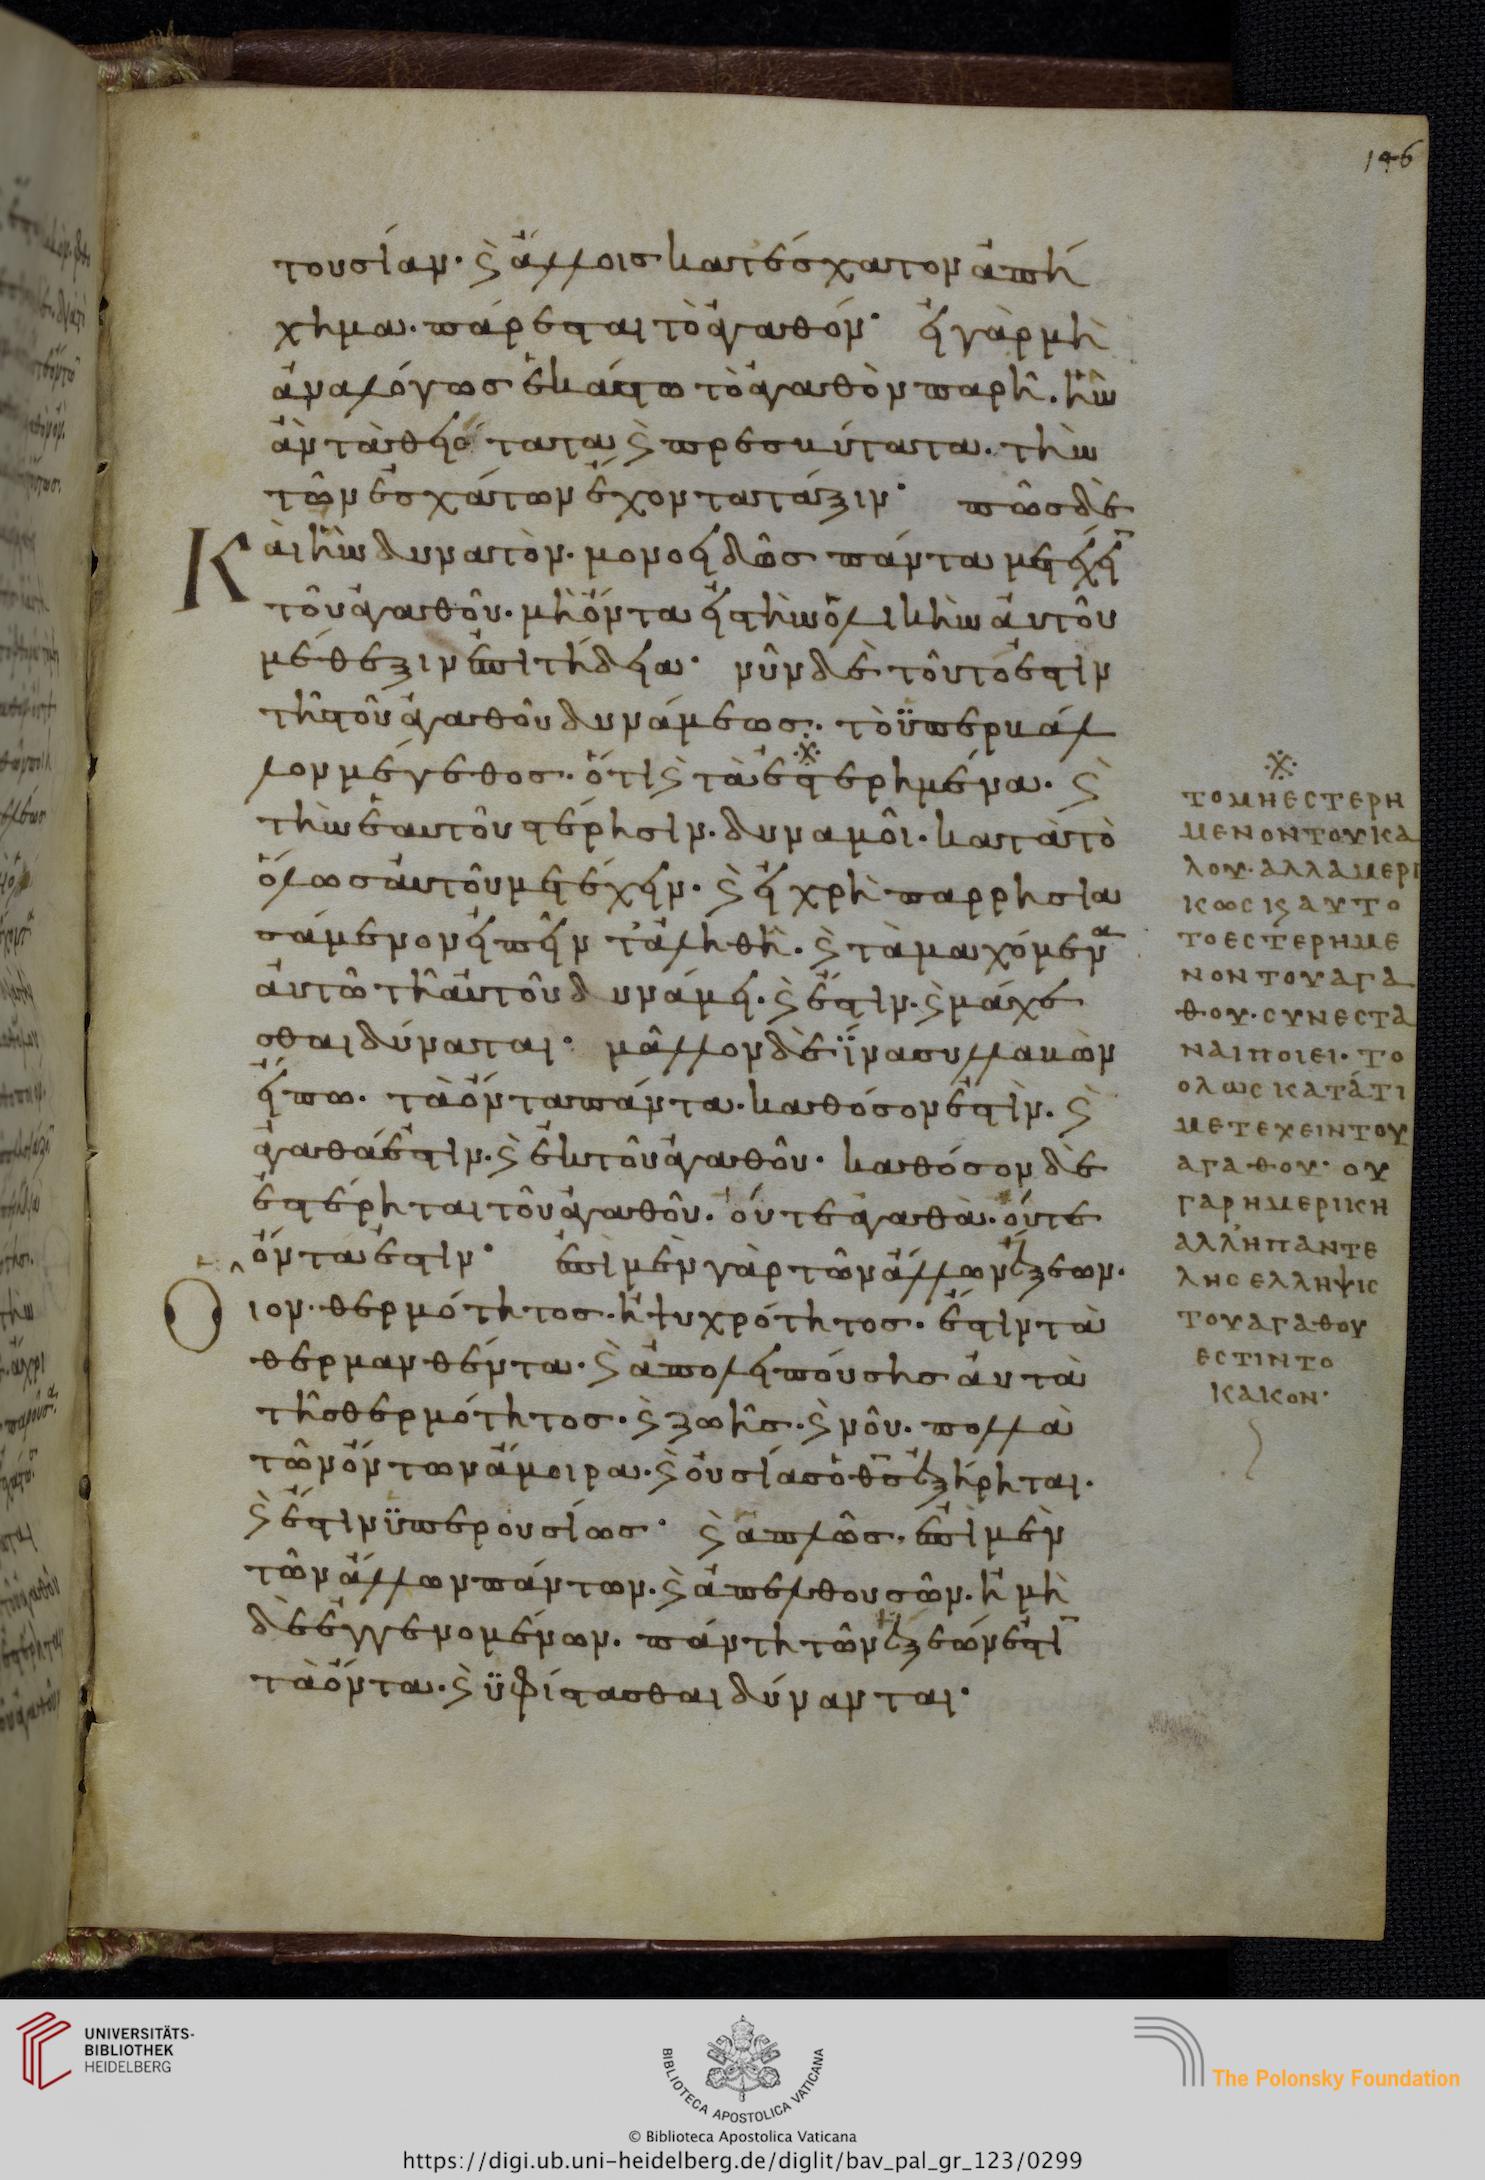 146
τουσίαν· ϗ ἄλλοισ κατέσχατον ἀπή
χημα· πάρεσται τὸ ἀγαθόν· εἰ γὰρ μὴ
ἀναλόγωσ ἑκάστω τὸ ἀγαθὸν παρῆ· ἦν
ἂν τὰ θειότατα ϗ πρεσβύτατα· τὴν
τῶν ἐσχάτων ἔχοντα τάξιν· πῶσ δὲ
Κὰι ἦν δυνατὸν· μονοειδῶσ πάντα μετέχειν
τοῦ ἀγαθοῦ· μὴ ὄντα εἰσ τὴν ὁλικὴν ἀυτοῦ
μέθεξιν ἐπιτήδεια· νῦν δὲ τοῦτό ἐστιν
τῆσ τοῦ ἀγαθοῦ δυνάμεωσ· τὸ ϋπερβάλ
λον μέγεθοσ· ὅτι ϗ τὰ ἐστερημένα· ϗ
τὴν ἑαυτοῦ στέρησιν· δυναμοῖ· κατὰ τὸ
ὅλωσ ἀυτοῦ μετέχειν· ϗ εἰ χρὴ παρρησια
σάμενον ἐιπεῖν τἀληθῆ· ϗ τὰ μαχόμενα
ἀυτῶ τῆ ἀυτοῦ δυνάμει· ϗ ἔστιν· ϗ μάχε
σθαι δύναται· μᾶλλον δὲ ἵνα συλλαβὼν
ἔιπω· τὰ ὄντα πάντα· καθόσον ἐστὶν· ϗ
ἀγαθά ἐστιν· ϗ ἐκ τοῦ ἀγαθοῦ· καθόσον δὲ
ἐστέρηται τοῦ ἀγαθοῦ· ὄυτε ἀγαθὰ· ὄυτε
ὄντα ἐστὶν· ἐπὶ μὲν γὰρ τῶν ἄλλων ἕξεων·
Οιον· θερμότητοσ· ἢ ψυχρότητοσ· ἔστιν τὰ
θερμανθέντα· ϗ ἀπολειπούσησ ἀυτὰ
τῆσ θερμότητοσ· ϗ ζωῆσ· ϗ νοῦ· πολλὰ
τῶν ὄντων ἄμοιρα· ϗ ὀυσίασ ὁ θσ ἐξήρηται·
ϗ ἔστιν ϋπερουσίωσ· ϗ ἁπλῶσ· ἐπὶ μὲν
τῶν ἄλλων πάντων· ϗ ἀπελθουσῶν· ἢ μὴ
δὲ ἐγγενομένων· πάντη τῶν ἕξεών ἐστι
τὰ ὄντα· ϗ ϋφίστασθαι δύνανται·
ΤΟ ΜΗ ΕСΤΕΡΗ
ΜΕΝΟΝ ΤΟΥ ΚΑ
ΛΟΥ· ΑΛΛΑ ΜΕΡΙ
ΚωС Κϛ ΑΥΤΟ
ΤΟ ΕСΤΕΡΗΜΕ
ΝΟΝ ΤΟΥ ΑΓΑ
ΘΟΥ· СΥΝΕСΤΑ
ΝΑΙ ΠΟΙΕΙ· ΤΟ
ΟΛωС ΚΑΤΑ ΤΙ
ΜΕΤΕΧΕΙΝ ΤΟΥ
ΑΓΑΘΟΥ· ΟΥ
ΓΑΡ Η ΜΕΡΙΚΗ
ΑΛΛ Η ΠΑΝΤΕ
ΛΗС ΕΛΛΗΨΙС
ΤΟΥ ΑΓΑΘΟΥ
ΕСΤΙΝ ΤΟ
ΚΑΚΟΝ·
UNIVERSITÄTS-
BIBLIOTHEK
HEIDELBERG
BIBLIOTECA APOSTOLICA VATICANA
The Polonsky Foundation
© Biblioteca Apostolica Vaticana
https://digi.ub.uni-heidelberg.de/diglit/bav_pal_gr_123/0299